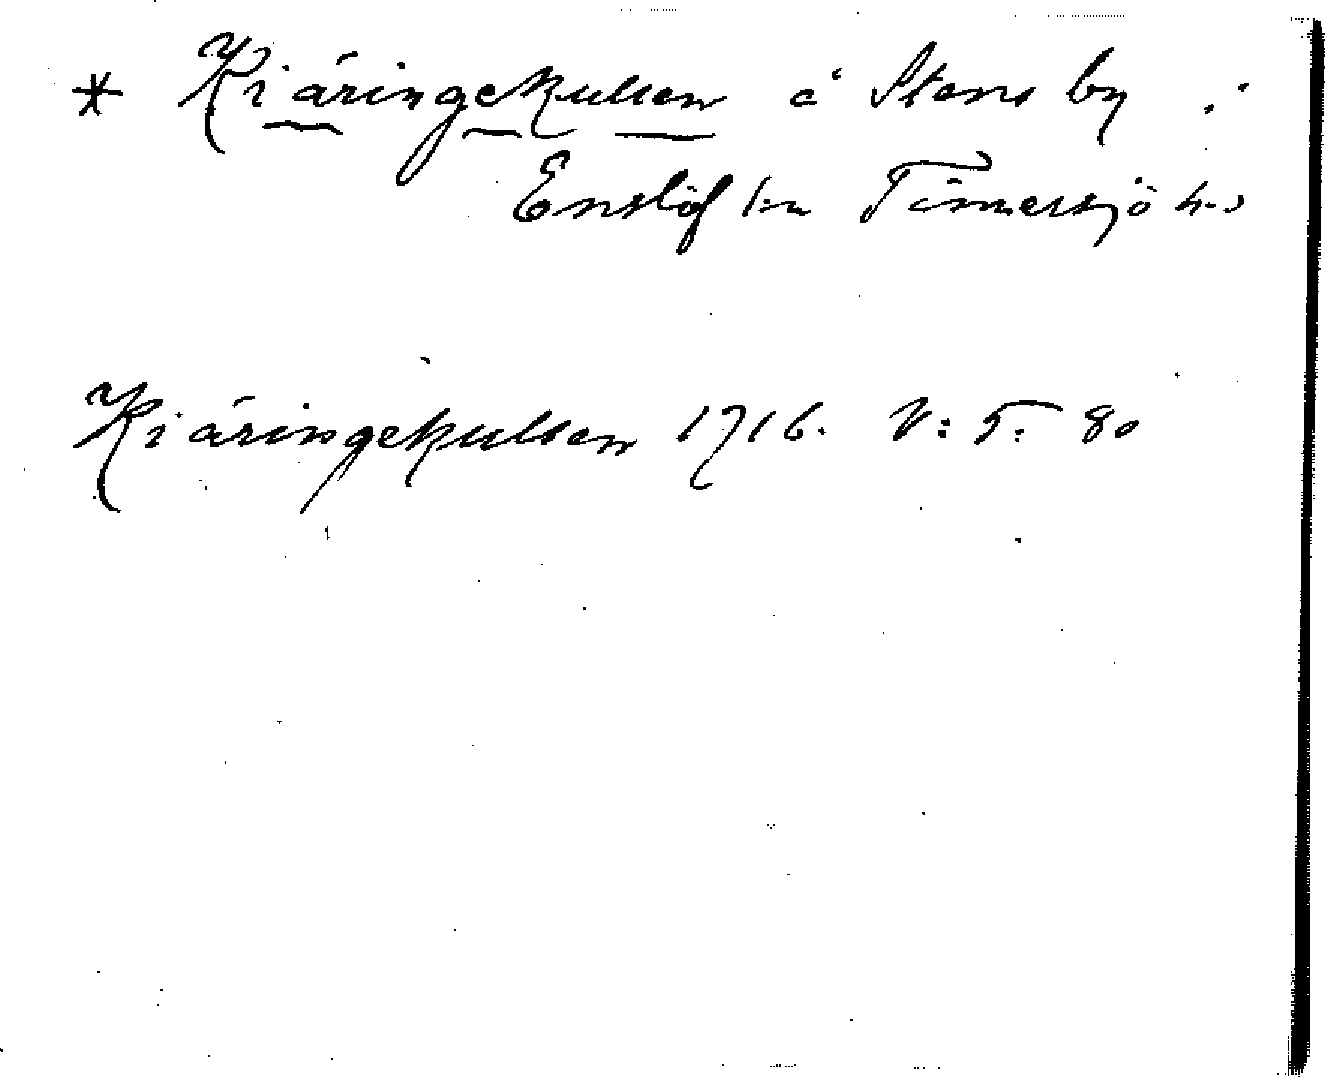 * Kiäringekullen å Stens by i
Enslöf sn Tönnersjö h-d
Kiäringekullen 1716. V: 5: 80